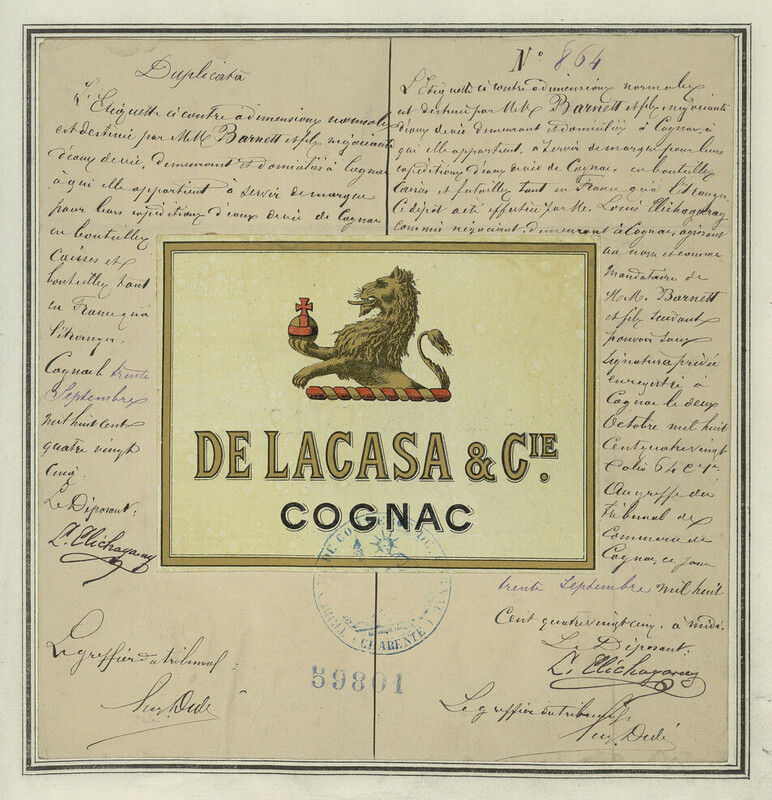 Duplicata
L'Etiquette ci contre a dimensions normales
est destinée par M.M. Barnett et fils négociants
d'eaux de vie, demeurant et domiciliés à Cognac
à qui elle appartient à servir de marque
pour leurs expéditions d'eaux de vie de Cognac
en bouteilles
Caisses et
bouteilles tant
en France qu'à
l'étranger.
Cognac le trente
Septembre
mil huit cent
quatre vingt
cinq.
Le Déposant:
L. Elichagaray
Le greffier du tribunal:
Aug. Dedé
N° 864
L'Etiquette ci contre a dimensions normales
est destinée par M.M. Barnett et fils négociants
d'eaux de vie demeurant et domiciliés à Cognac à
qui elle appartient, à servir de marque pour leurs
expéditions d'eaux de vie de Cognac, en bouteilles
Caisses et futailles tant en France qu'à l'étranger.
Ce dépôt a été effectué par M. Louis Elichagaray
commis négociant, demeurant à Cognac, agissant
au nom et comme
mandataire de
M.M. Barnett
et fils suivant
pouvoir sous
signature privée
enregistré à
Cognac le deux
Octobre mil huit
Cent quatre vingt
Folio 64 C
Au greffe du
Tribunal de
Commerce de
Cognac, ce jour
trente Septembre mil huit
Cent quatre vingt cinq, à midi.
Le Déposant:
L. Elichagaray
Le greffier du tribunal:
Aug. Dedé
DE LACASA & CIE.
COGNAC
(CHARENTE)
59801